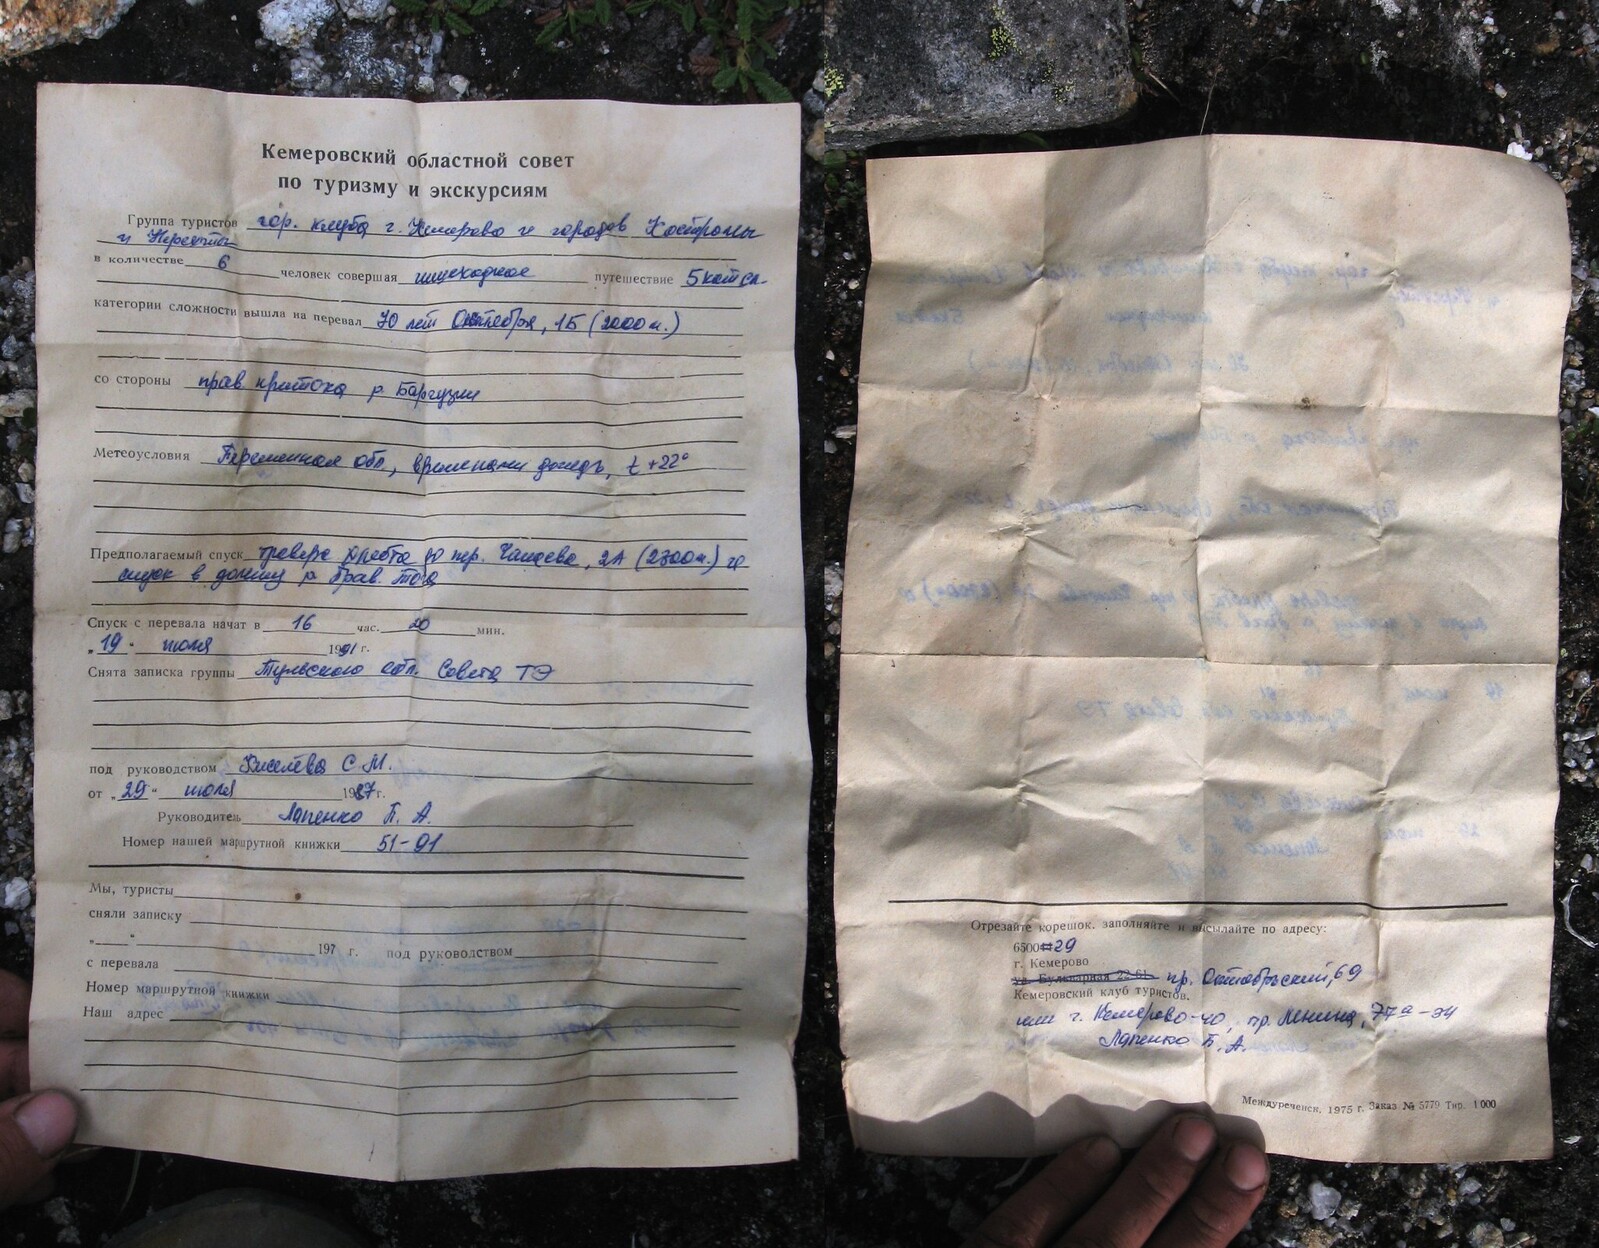 Кемеровский областной совет
по туризму и экскурсиям
Группа туристов гор. клуба г. Кемерово и городов Костромы
и Нерехты
в количестве 6 человек совершая пешеходное путешествие 5 кат сл.
категории сложности вышла на перевал 70 лет Октября, 1Б (2000 м.)
со стороны прав притока р Баргузин
Метеоусловия Переменная обл, временами дождь, t +22°
Предполагаемый спуск траверз хребта до пер. Чапаева, 2А (2300 м.) и
спуск в долину р Прав.
Спуск с перевала начат в 16 час. 20 мин.
„19" июля 1991 г.
Снята записка группы Тульского обл. Совета ТЭ
под руководством Киселёва С М.
от „29" июля 1987 г.
Руководитель Лапенко Б. А.
Номер нашей маршрутной книжки 51-91
Мы, туристы
сняли записку
„ " 197 г. под руководством
с перевала
Номер маршрутной книжки
Наш адрес
Отрезайте корешок, заполняйте и высылайте по адресу:
650029
г. Кемерово
ул. Бульварная 22-61 пр. Октябрьский, 69
Кемеровский клуб туристов.
или г. Кемерово-40, пр. Ленина, 77а-34
Лапенко Б. А.
Междуреченск, 1975 г. Заказ № 5779 Тир. 1000